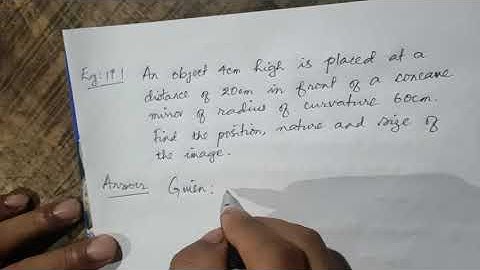 Eg: 19.1 An object 4cm high is placed at a
distance of 20cm in front of a concave
mirror of radius of curvature 60cm.
Find the position, nature and size of
the image.
Answer Given: